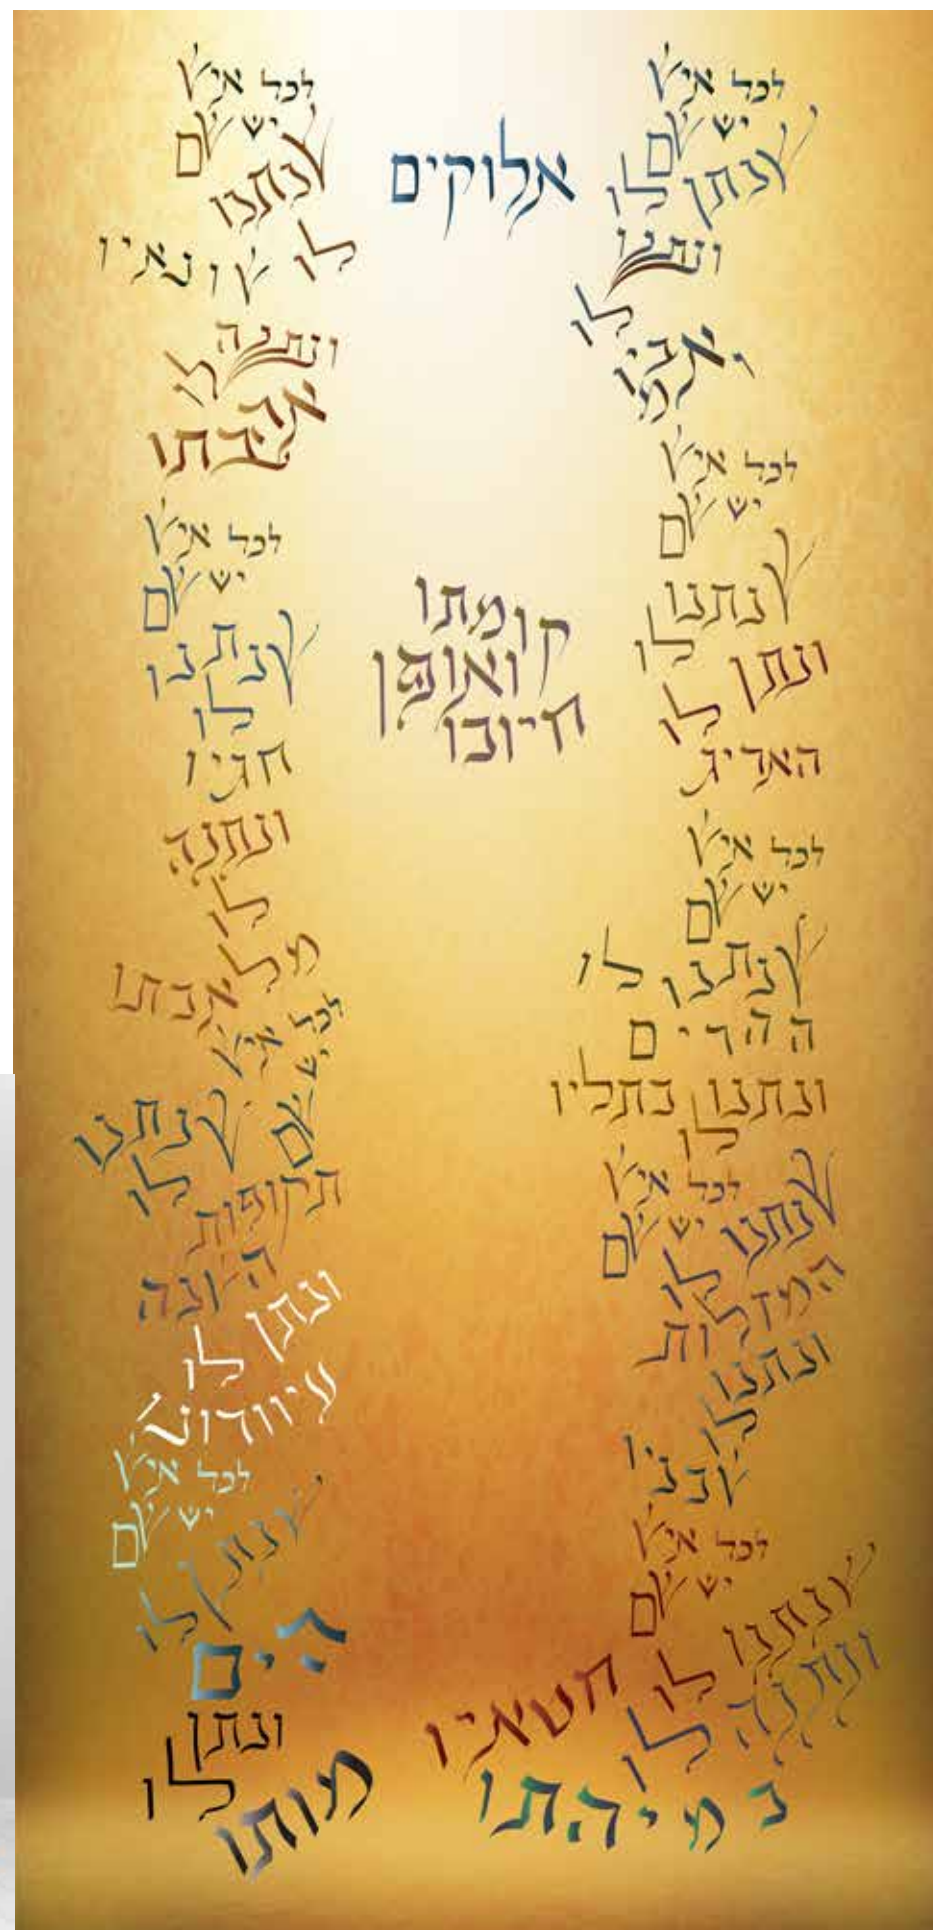 לכל איש
יש שם
שנתן לו
אלוקים
ונתנו
לו
אביו
ואמו
לכל איש
יש שם
שנתנו
לו
קומתו
ואופן
חיוכו
ונתן
לו
האריג
לכל איש
יש שם
שנתנו לו
ההרים
ונתנו כתליו
לו
לכל איש
יש שם
שנתנו
לו
המזלות
ונתנו
לו
שכניו
לכל איש
יש שם
שנתנו
לו חטאיו
ונתנה
לו
כמיהתו
לכל איש
יש שם
שנתנו
לו שונאיו
ונתנה
לו
אהבתו
לכל איש
יש שם
שנתנו
לו
חגיו
ונתנה
לו
מלאכתו
לכל איש
יש
שם שנתנו
לו
תקופות
השנה
ונתן
לו
עיוורונו
לכל איש
יש שם
שנתן
לו
הים
ונתן
לו
מותו